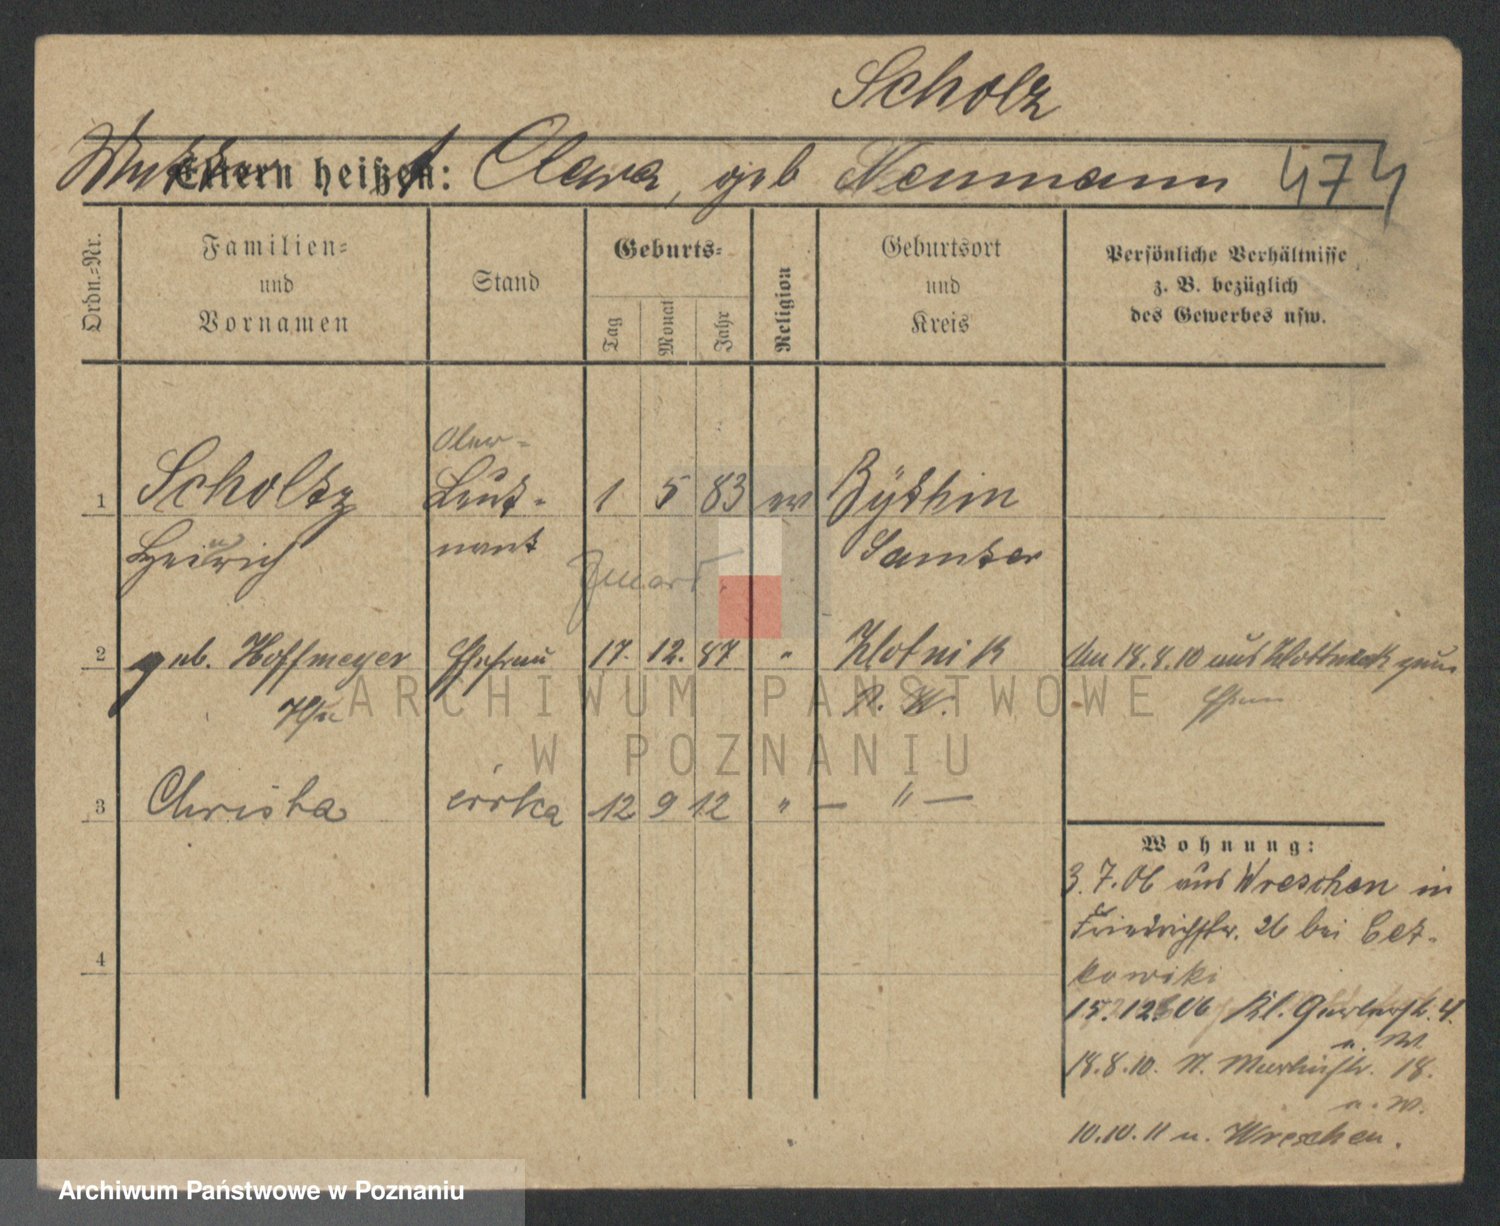 Scholz
Mutter Eltern heißen: Clara, geb Neumann 474
Ordn.=Nr.
Familien=
und
Vornamen
Stand
Geburts=
Tag
Monat
Jahr
Religion
Geburtsort
und
Kreis
Persönliche Verhältnisse
z. B. bezüglich
des Gewerbes usw.
Ober=
1 Scholtz Leut- 1 5 83 ev Bythin
Heinrich nant Samter
2 geb. Hoffmeyer Ehefrau 17. 12. 87 " Zlotnik
Ilse P. W.
18.8.10 aus
3 Christa 12 9 12 " — " —
Wohnung:
3.7.06 aus Wreschen in
Friedrichstr. 26 bei
4
15.12.06 Kl. Gerberstr. 4.
n. W
18.8.10. N. 18.
n. W.
10.10.11 n. Wreschen.
ARCHIWUM PAŃSTWOWE
W POZNANIU
Archiwum Państwowe w Poznaniu